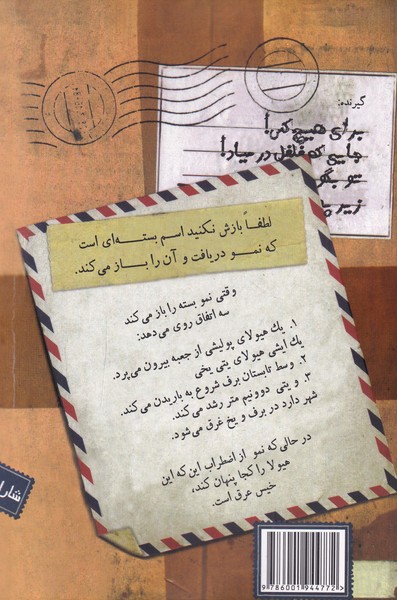 گیرنده:
برای هیچ کس!
جایی که فلفل در میاد!
تو بگو
زیر
لطفاً بازش نکنید اسم بسته‌ای است
که نمو دریافت و آن را باز می‌کند.
وقتی نمو بسته را باز می‌کند
سه اتفاق روی می‌دهد:
۱. یک هیولای پولیشی از جعبه بیرون می‌پرد.
یک ایشی هیولای یتی یخی
۲. وسط تابستان برف شروع به باریدن می‌کند.
۳. و یتی دوونیم متر رشد می‌کند.
شهر دارد در برف و یخ غرق می‌شود.
در حالی که نمو از اضطراب این که این
هیولا را کجا پنهان کند،
خیس عرق است.
شارا
9 786001 944772 >